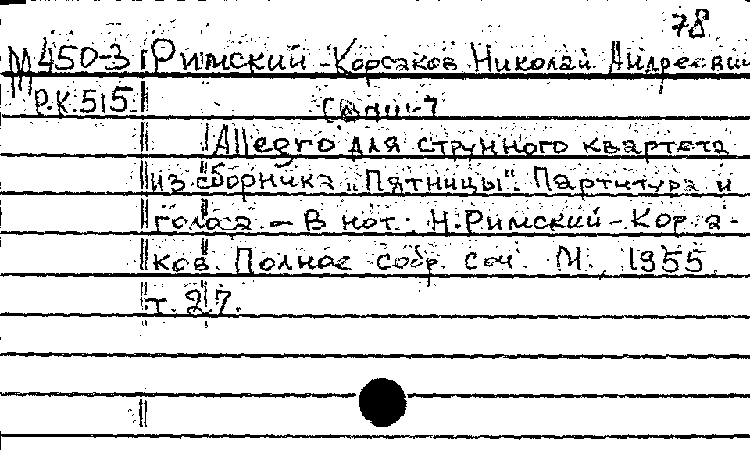 78
М 450-3 Римский-Корсаков Николай Андреевич
Р.К.515
Allegro для струнного квартета
из сборника „Пятницы". Партитура и
голоса – В нот.: Н.Римский-Корса-
ков. Полное собр. соч. М., 1955
т. 27.